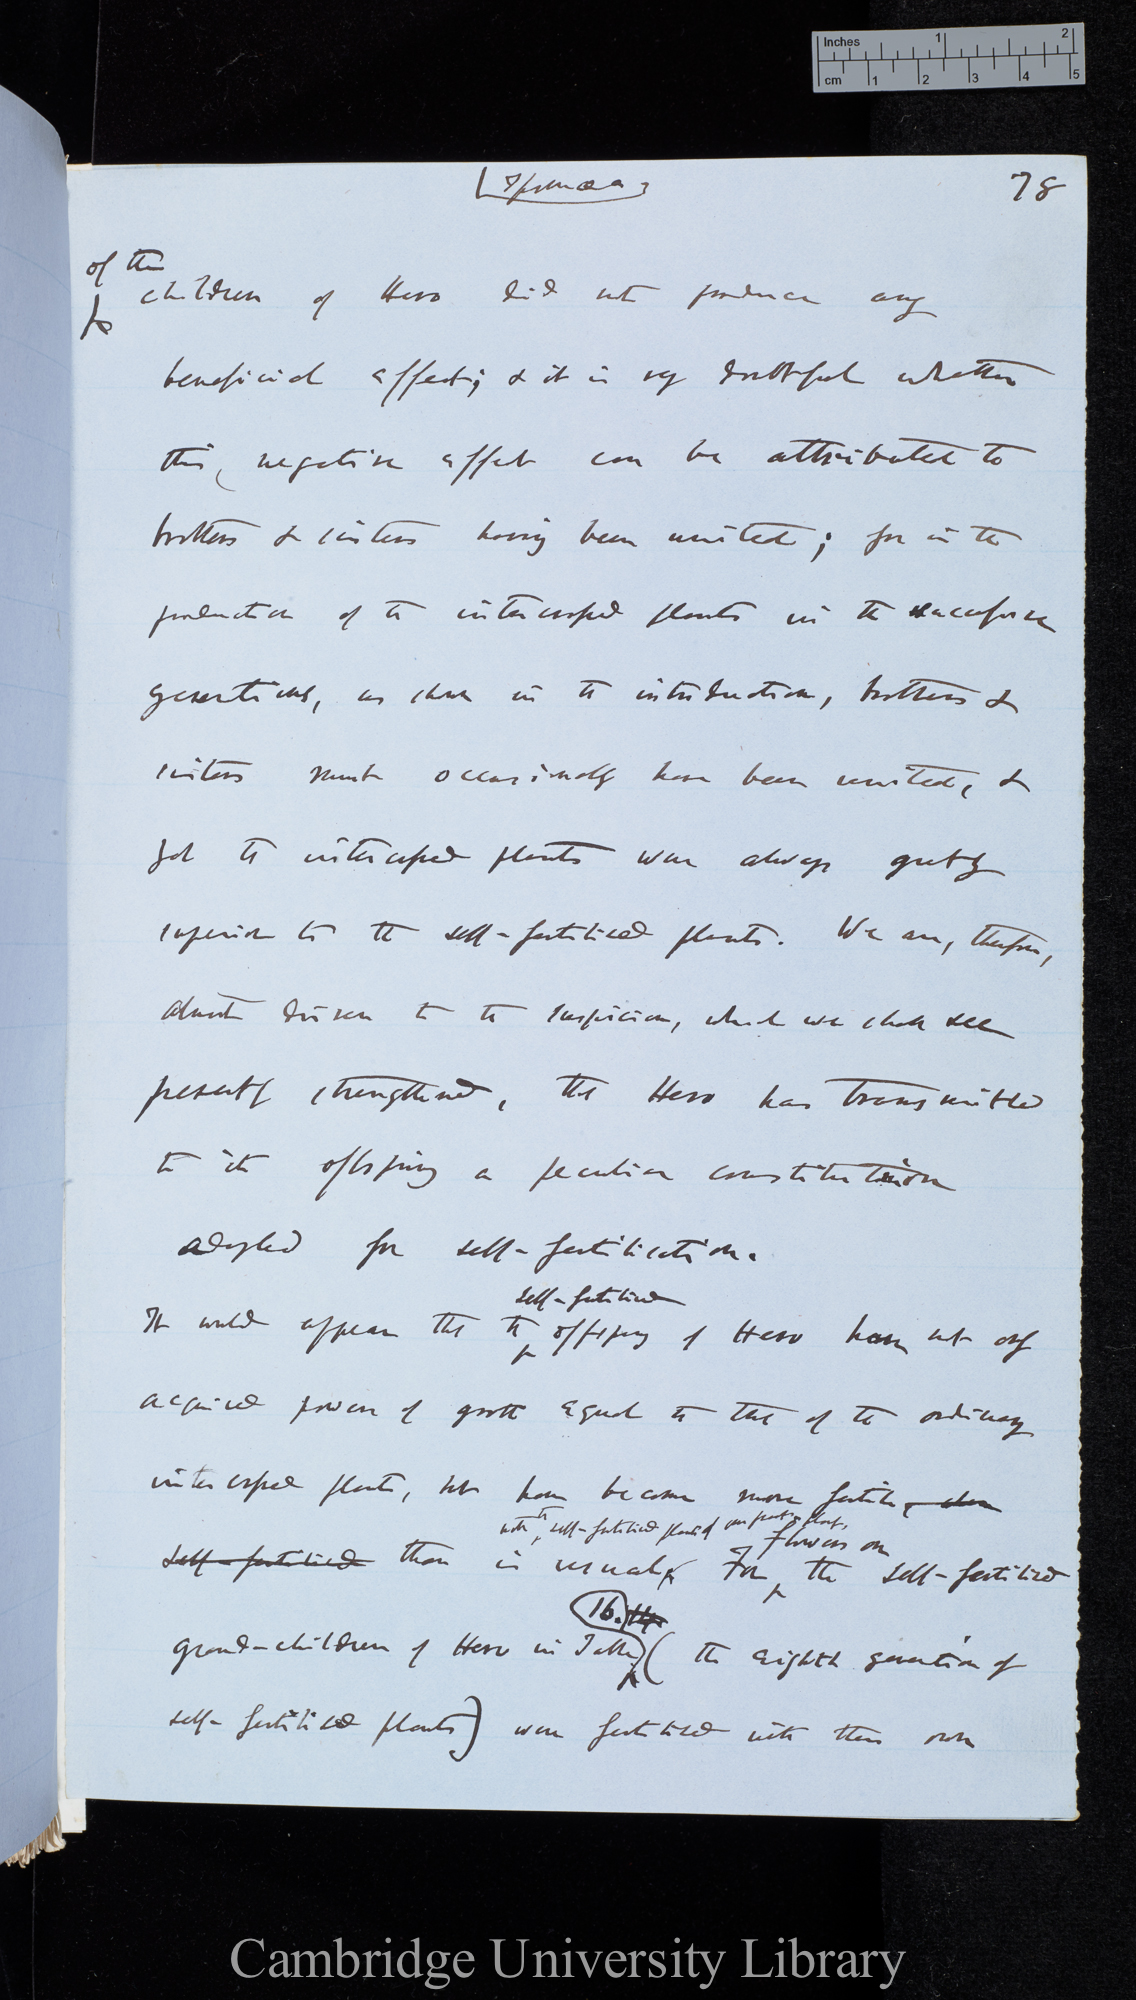 Inches 1 2
cm 1 2 3 4 5
[Ipomœa] 78
of the
children of Hero did not produce any
beneficial effect; & it is very doubtful whether
this negative effect can be attributed to
brothers & sisters having been united; for in the
production of the intercrossed plants in the successive
generations, as shown in the introduction, brothers &
sisters must occasionally have been united, &
yet the intercrossed plants were always greatly
superior to the self-fertilised plants. We are, therefore,
almost driven to the suspicion, which we shall see
presently strengthened, that Hero has transmitted
to its offspring a peculiar constitution
adapted for self-fertilisation.
self-fertilised
It would appear that the offspring of Hero have not only
acquired power of growth equal to that of the ordinary
intercrossed plants, but have become more fertile when
with the self-fertilised plants of present plant, flowers on
self-fertilised than is usual. For the self-fertilised
16.
grand-children of Hero in Table (the eighth generation of
self-fertilised plants) were fertilised with their own
Cambridge University Library